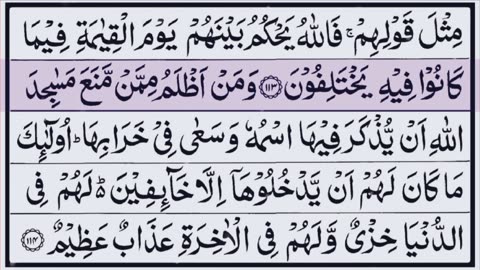 مِثْلَ قَوْلِهِمْ ۚ فَاللّٰهُ یَحْكُمُ بَیْنَهُمْ یَوْمَ الْقِیٰمَةِ فِیْمَا
كَانُوْا فِیْهِ یَخْتَلِفُوْنَ ﴿۱۱۳﴾ وَمَنْ اَظْلَمُ مِمَّنْ مَّنَعَ مَسٰجِدَ
اللّٰهِ اَنْ یُّذْكَرَ فِیْهَا اسْمُهٗ وَسَعٰی فِیْ خَرَابِهَا ؕ اُولٰٓئِكَ
مَا كَانَ لَهُمْ اَنْ یَّدْخُلُوْهَاۤ اِلَّا خَآئِفِیْنَ ؕ لَهُمْ فِی
الدُّنْیَا خِزْیٌ وَّلَهُمْ فِی الْاٰخِرَةِ عَذَابٌ عَظِیْمٌ ﴿۱۱۴﴾